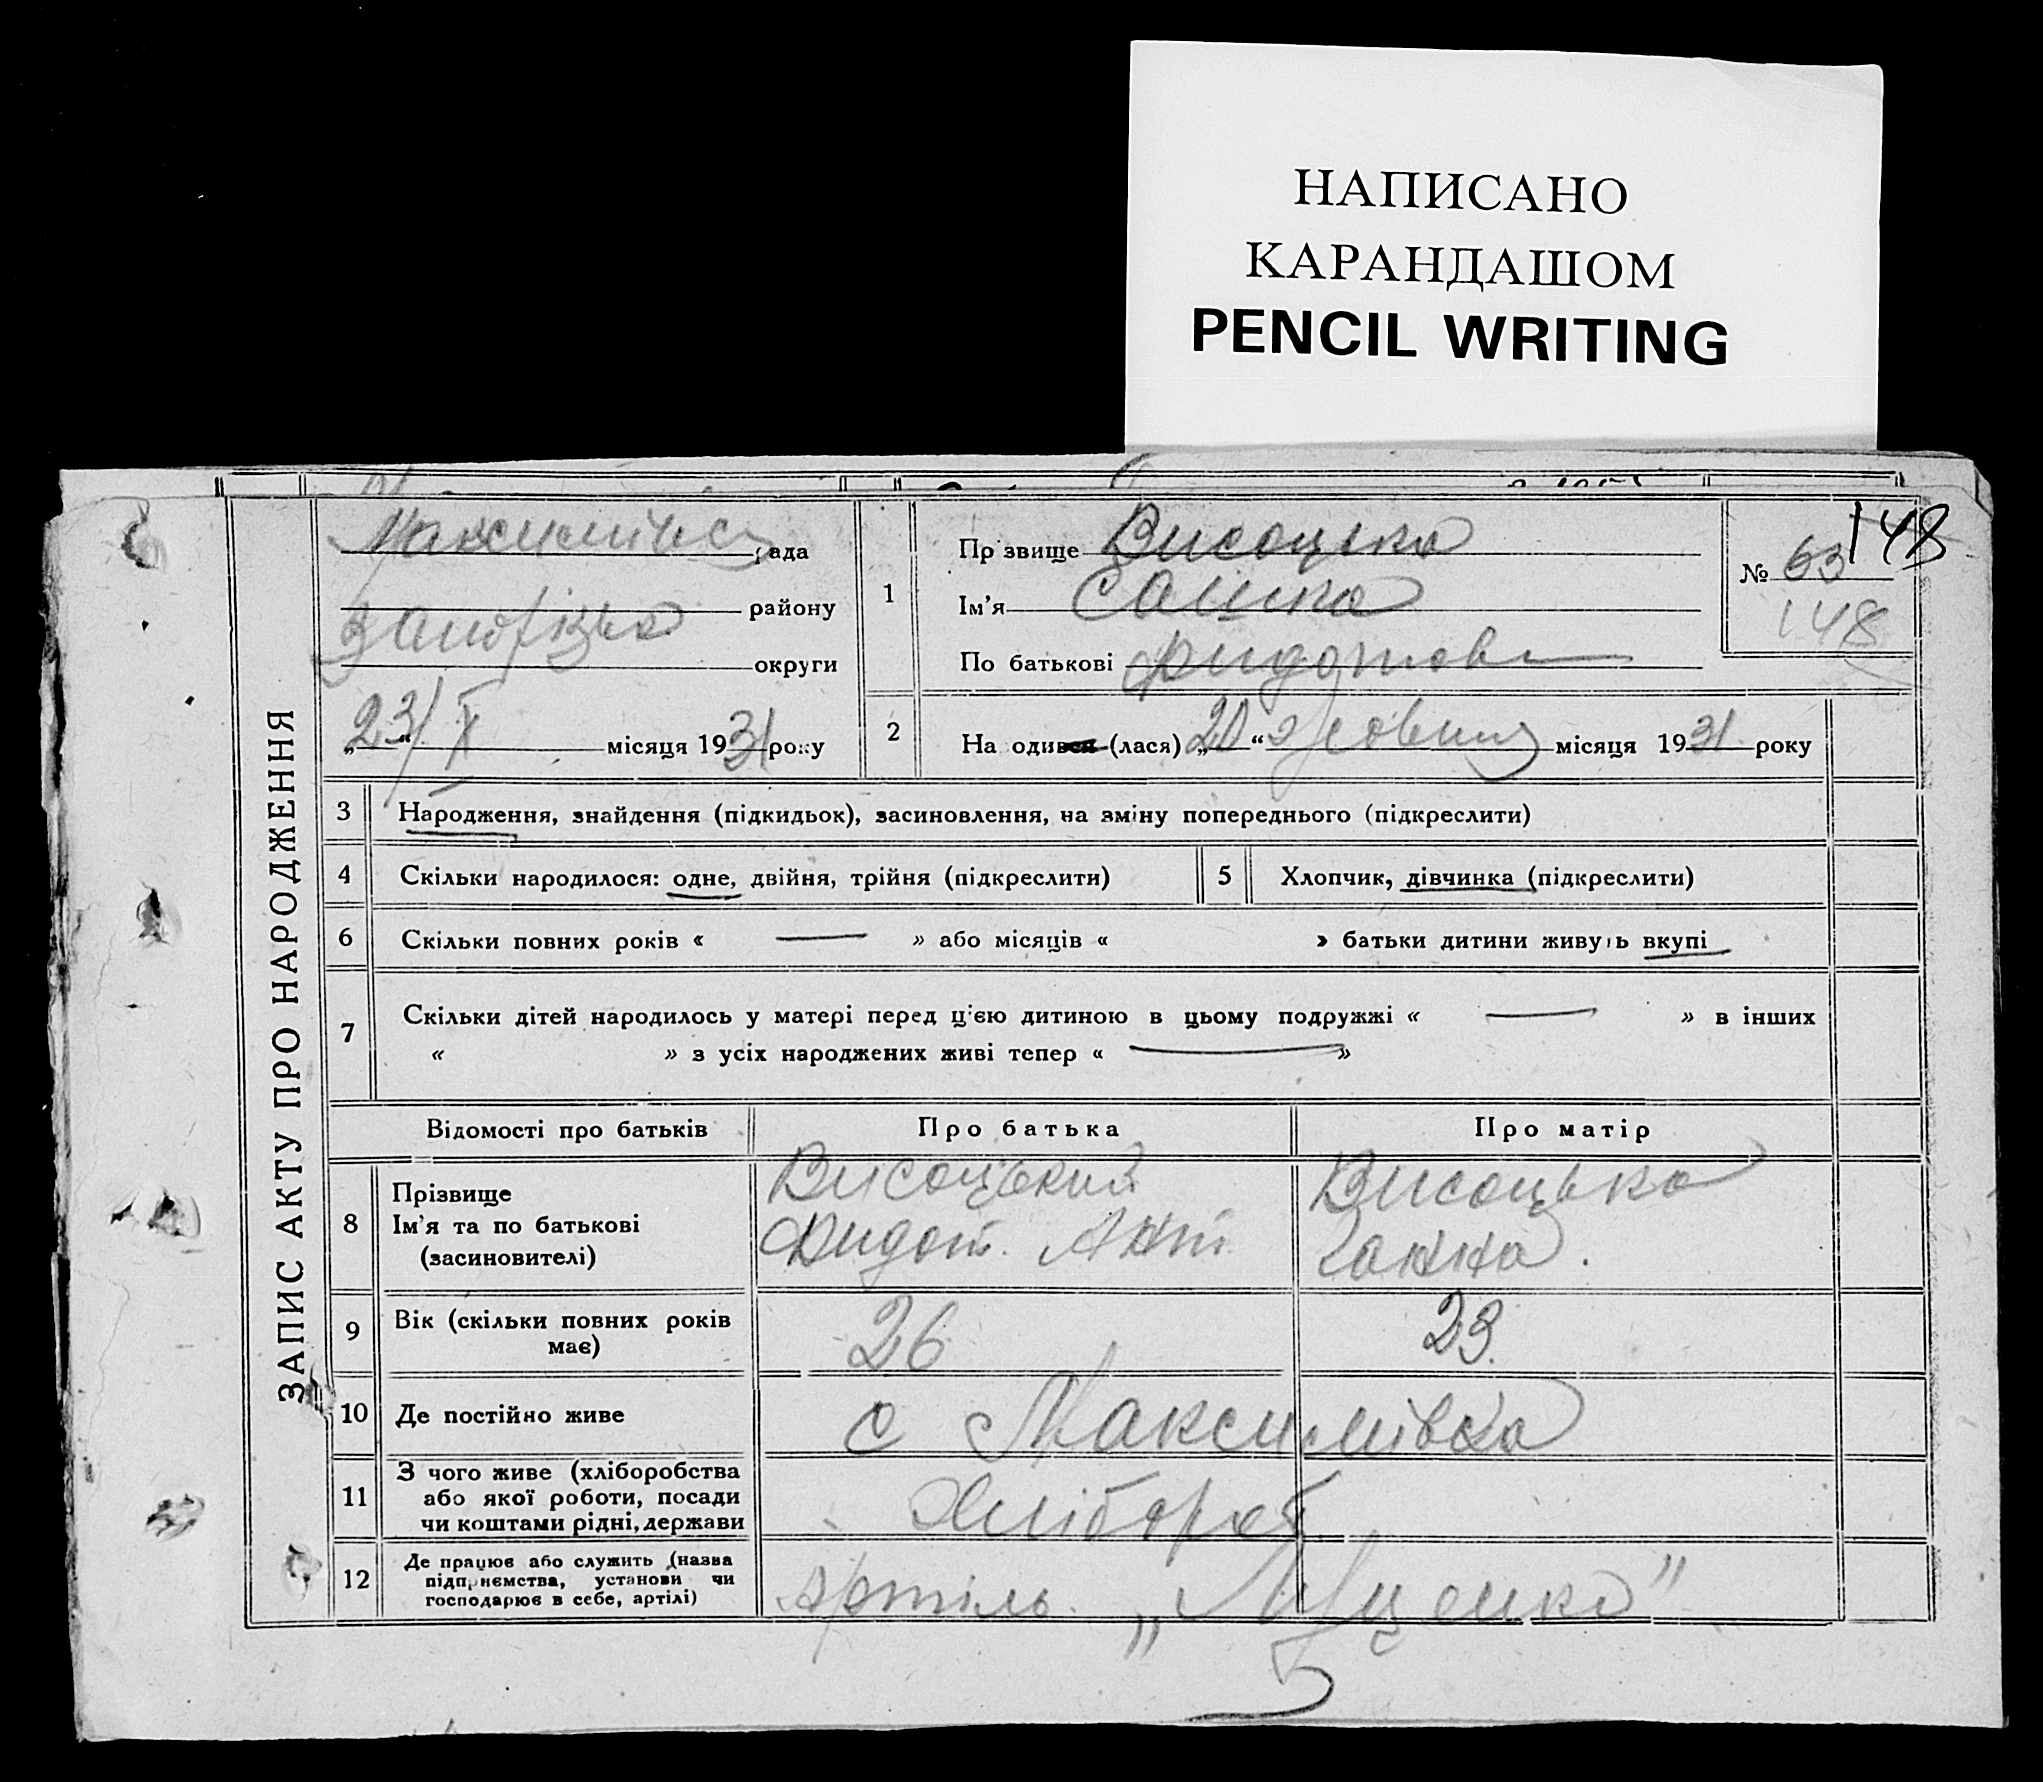 НАПИСАНО
КАРАНДАШОМ
PENCIL WRITING
ЗАПИС АКТУ ПРО НАРОДЖЕННЯ
рада
району
округи
23/X місяця 1931 року
1
Прізвище Висоцька
Ім'я Сашка
По батькові
№ 63 148
148
2
На одився (лася) „20“ Жовтня місяця 1931 року
3 Народження, знайдення (підкидьок), засиновлення, на зміну попереднього (підкреслити)
4 Скільки народилося: одне, двійня, трійня (підкреслити)
5 Хлопчик, дівчинка (підкреслити)
6 Скільки повних років « — » або місяців « » батьки дитини живуть вкупі
7 Скільки дітей народилось у матері перед цією дитиною в цьому подружжі « — » в інших
« » з усіх народжених живі тепер « — »
Відомості про батьків
Про батька
Про матір
8 Прізвище
Ім'я та по батькові
(засиновителі)
Висоцький
Фидот. Ант.
Висоцька
Ганна.
9 Вік (скільки повних років
має)
26
23.
10 Де постійно живе
с Максимівка
11 З чого живе (хліборобства
або якої роботи, посади
чи коштами рідні, держави
Хлібороб
12 Де працює або служить (назва
підприємства, установи чи
господарює в себе, артілі)
Артіль